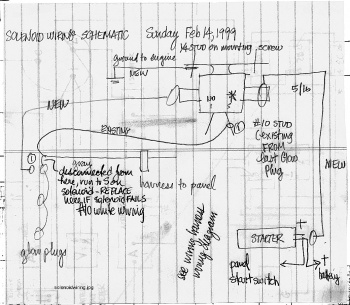 SOLENOID WIRING SCHEMATIC Sunday Feb 14, 1999
1/4 STUD on mounting screw
ground to engine
NEW
NEW
NO
5/16
EXISTING
1
#10 STUD
(existing
FROM
last Glow
Plug
NEW
1
disconnected from
here, run to S on
solenoid - REPLACE
HERE IF solenoid FAILS
#10 white wiring
harness to panel
see wiring harness
wiring diagram
glow plugs
STARTER
+
panel
start switch
+
battery
solenoidwiring.jpg